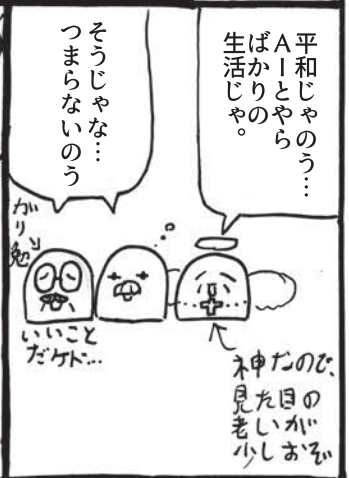 平和じゃのう…
AIとやら
ばかりの
生活じゃ。
そうじゃな…
つまらないのう
がり勉
いいこと
だケド…
神なので、
見た目の
老いが
少しおそ